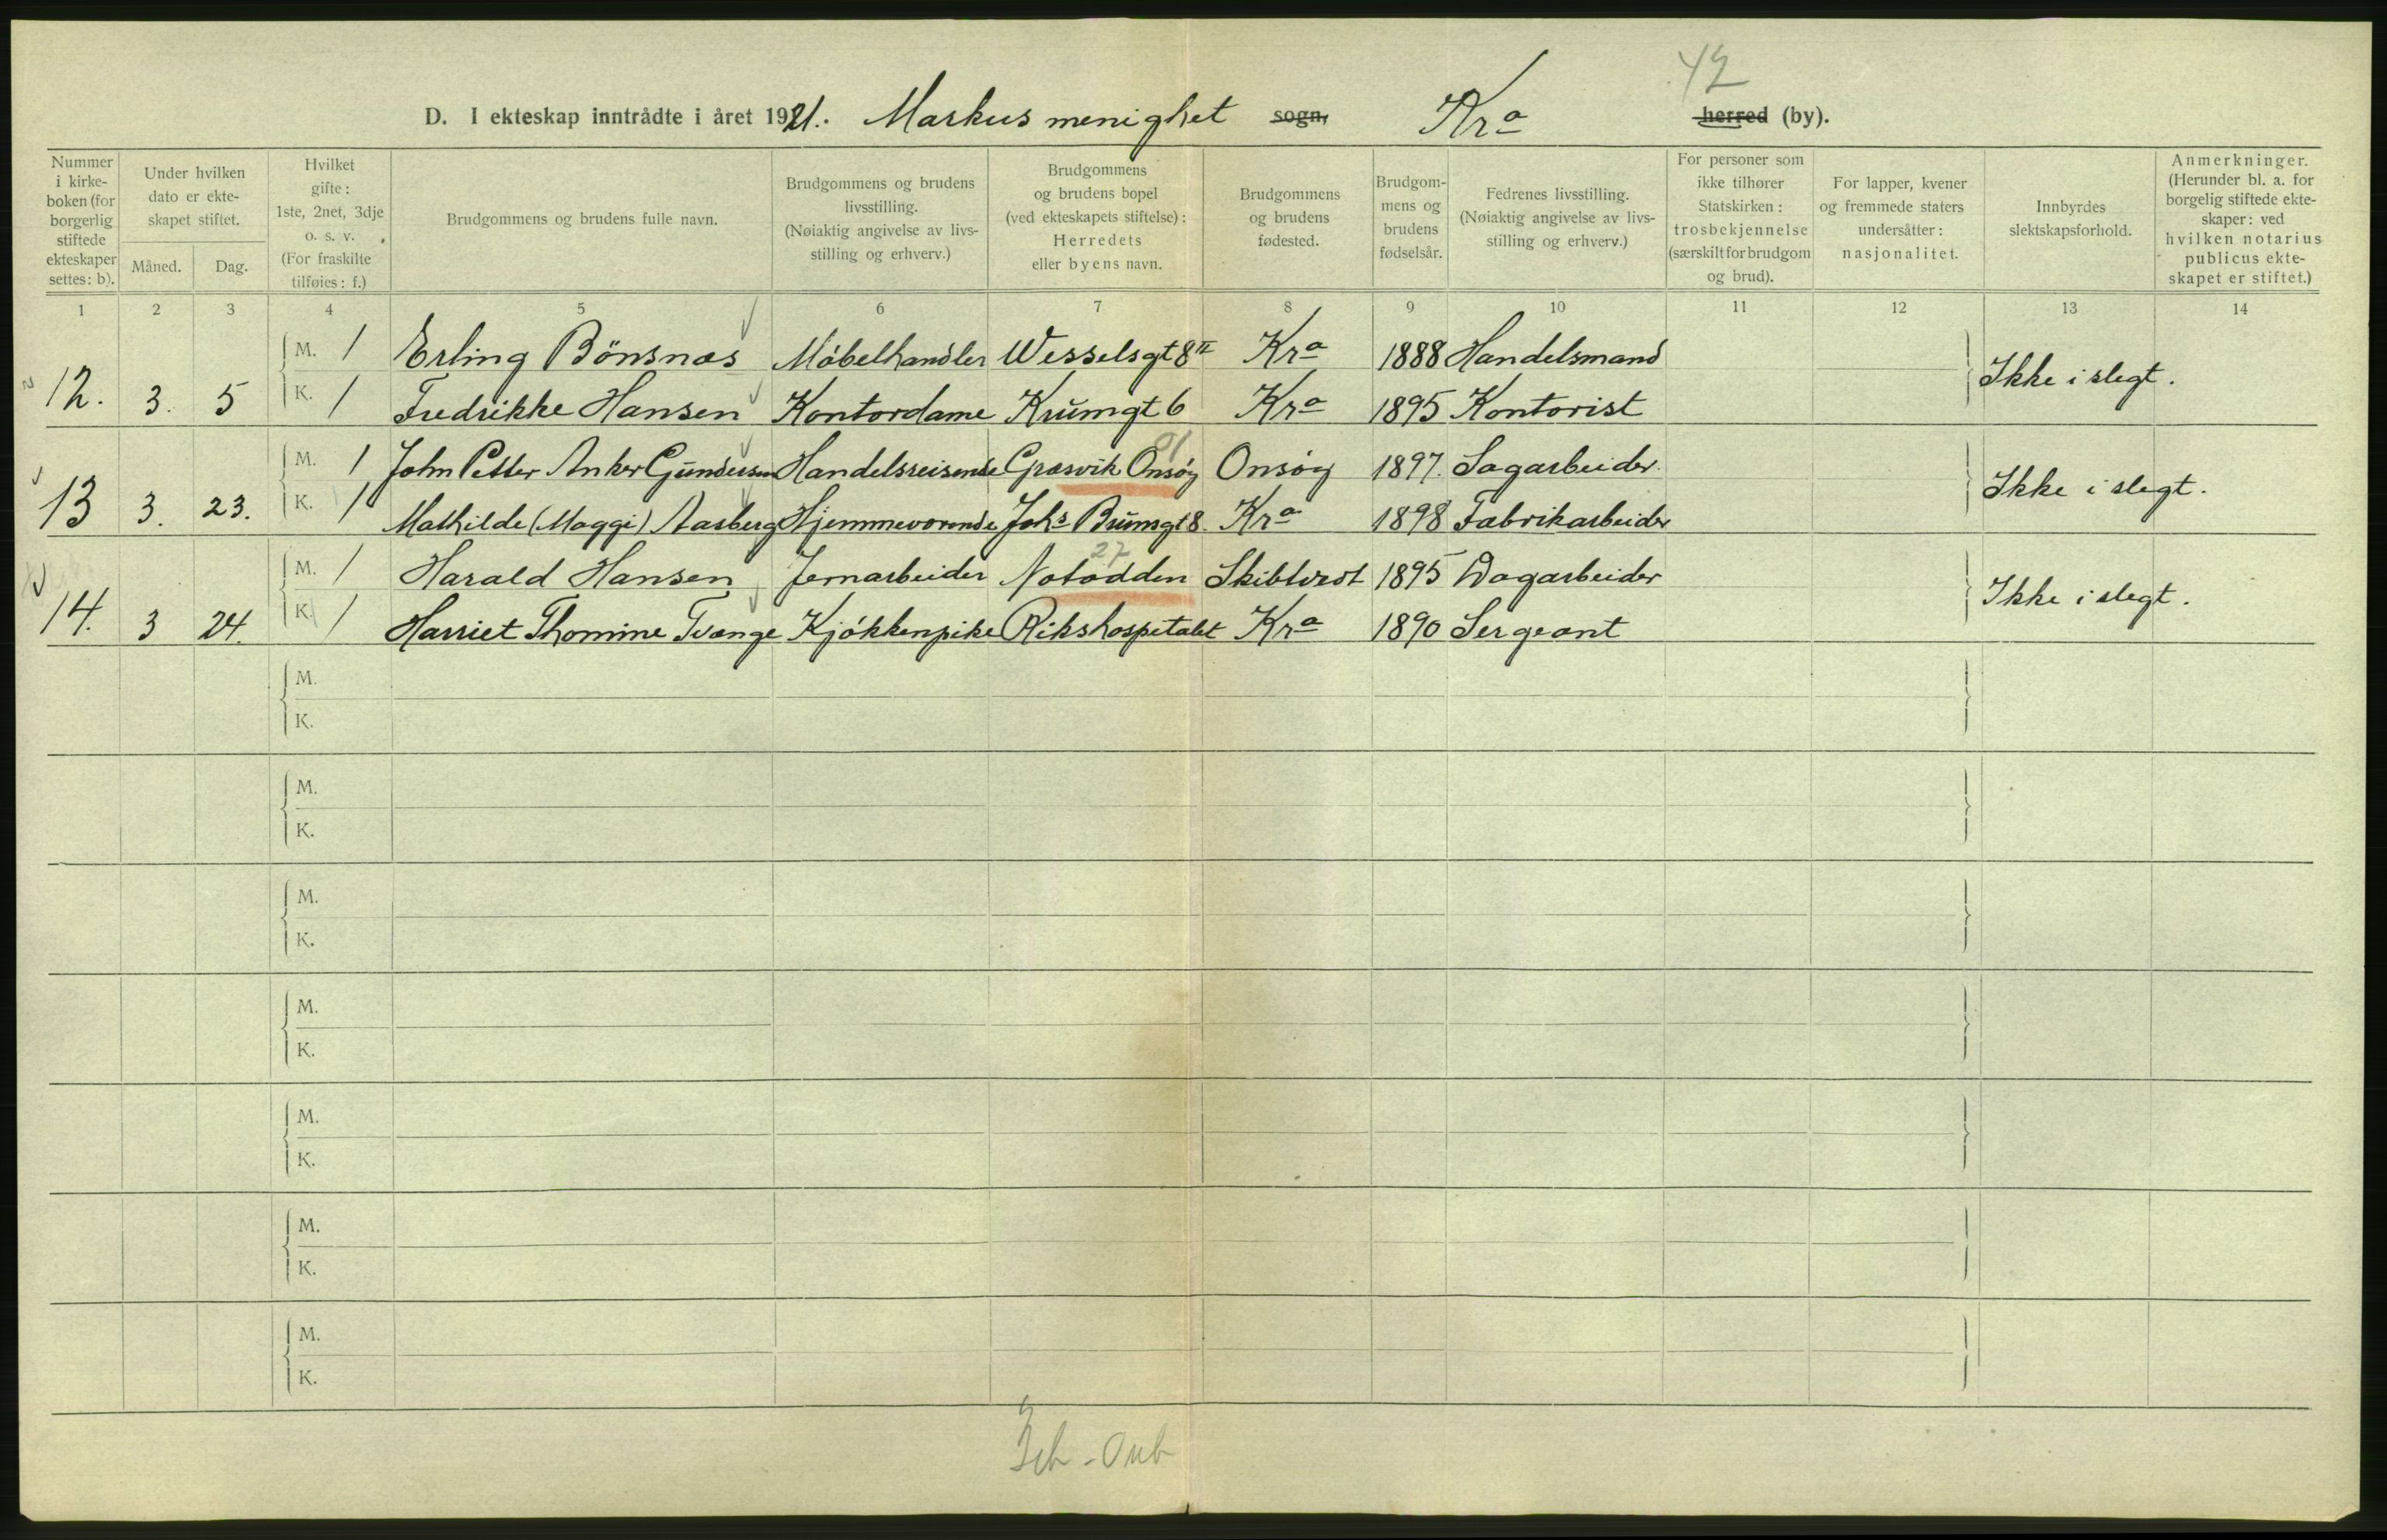 42
D. I ekteskap inntrådte i året 1921. Markus menighet sogn, Kra herred (by).
Nummer i kirke-boken (for borgerlig stiftede ekteskaper settes: b).
Under hvilken dato er ekte-skapet stiftet.
Måned.
Dag.
Hvilket gifte: 1ste, 2net, 3dje o. s. v. (For fraskilte tilføies: f.)
Brudgommens og brudens fulle navn.
Brudgommens og brudens livsstilling. (Nøiaktig angivelse av livs-stilling og erhverv.)
Brudgommens og brudens bopel (ved ekteskapets stiftelse): Herredets eller byens navn.
Brudgommens og brudens fødested.
Brudgom-mens og brudens fødselsår.
Fedrenes livsstilling. (Nøiaktig angivelse av livs-stilling og erhverv.)
For personer som ikke tilhører Statskirken: trosbekjennelse (særskilt for brudgom og brud).
For lapper, kvener og fremmede staters undersåtter: nasjonalitet.
Innbyrdes slektskapsforhold.
Anmerkninger. (Herunder bl. a. for borgelig stiftede ekte-skaper: ved hvilken notarius publicus ekte-skapet er stiftet.)
1 2 3 4 5 6 7 8 9 10 11 12 13 14
M. 1 Erling Bönsnæs Möbelhandler Wesselsgt 8 II Kra 1888 Handelsmand
12. 3. 5 Ikke i slegt.
K. 1 Fredrikke Hansen Kontordame Krumgt 6 Kra 1895 Kontorist
01
M. 1 John Petter Anker Gundersen Handelsreisende Græsvik Onsøy Onsøy 1897. Sagarbeider.
13 3. 23. Ikke i slegt.
K. 1 Mathilde (Maggi) Aasberg Hjemmeværende Johs Brunsgt 8. Kra 1898 Fabrikarbeider
27
M. 1 Harald Hansen Jernarbeider Notodden Skibtvedt 1895 Dagarbeider
14. 3 24. Ikke i slegt.
K. 1 Harriet Thomine Tvænge Kjøkkenpike Rikshospitalet Kra 1890 Sergeant
M.
K.
M.
K.
M.
K.
M.
K.
M.
K.
M.
K.
M.
K.
3